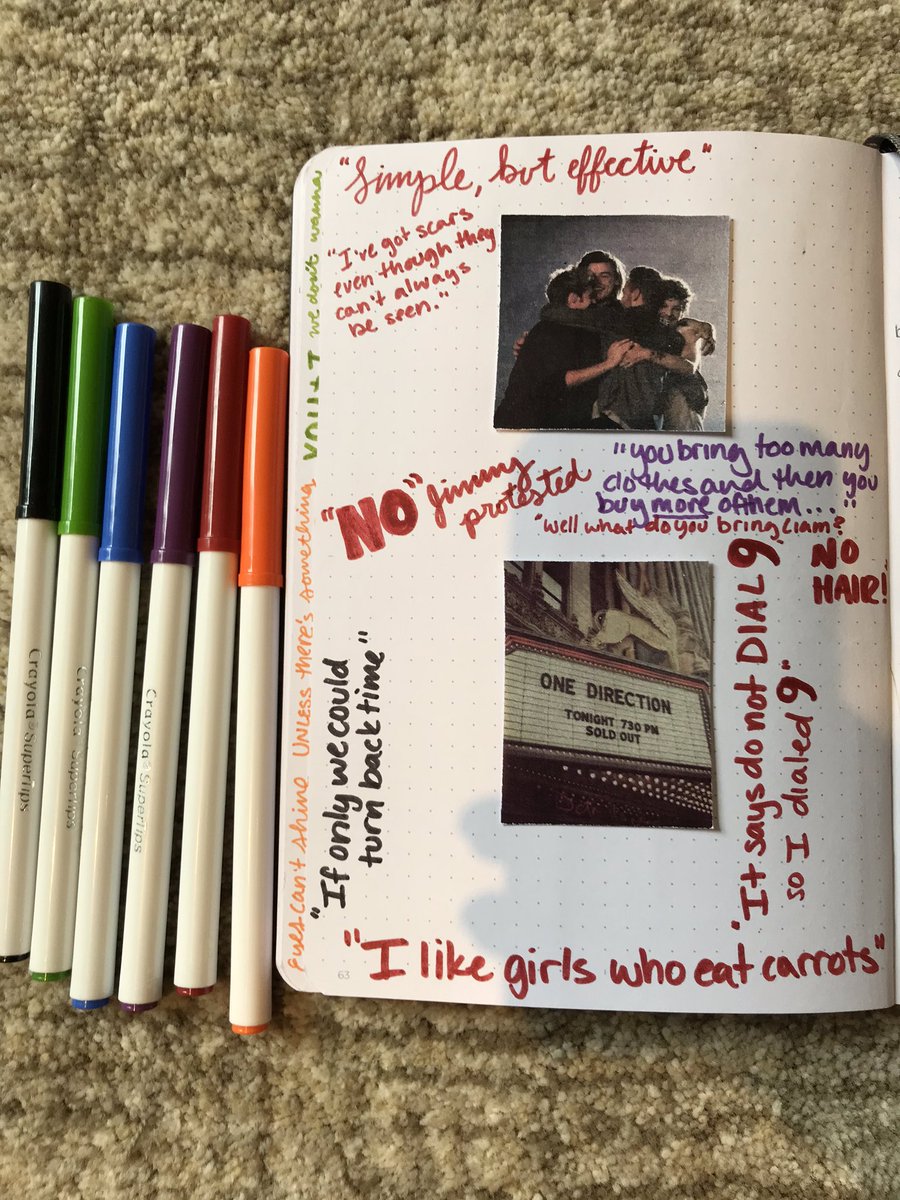 "Simple, but effective"
"I've got scars
even though they
can't always
be seen."
we don't wanna
"NO" Jimmy
protested
"you bring too many
clothes and then you
buy more of them..."
"well what do you bring Liam?
NO
HAIR!"
"If only we could
turn back time"
can't shine UNLESS there's something
ONE DIRECTION
TONIGHT 730 PM
SOLD OUT
"It says do not DIAL 9
so I dialed 9"
"I like girls who eat carrots"
63
Crayola SuperTips
Crayola SuperTips
Crayola SuperTips